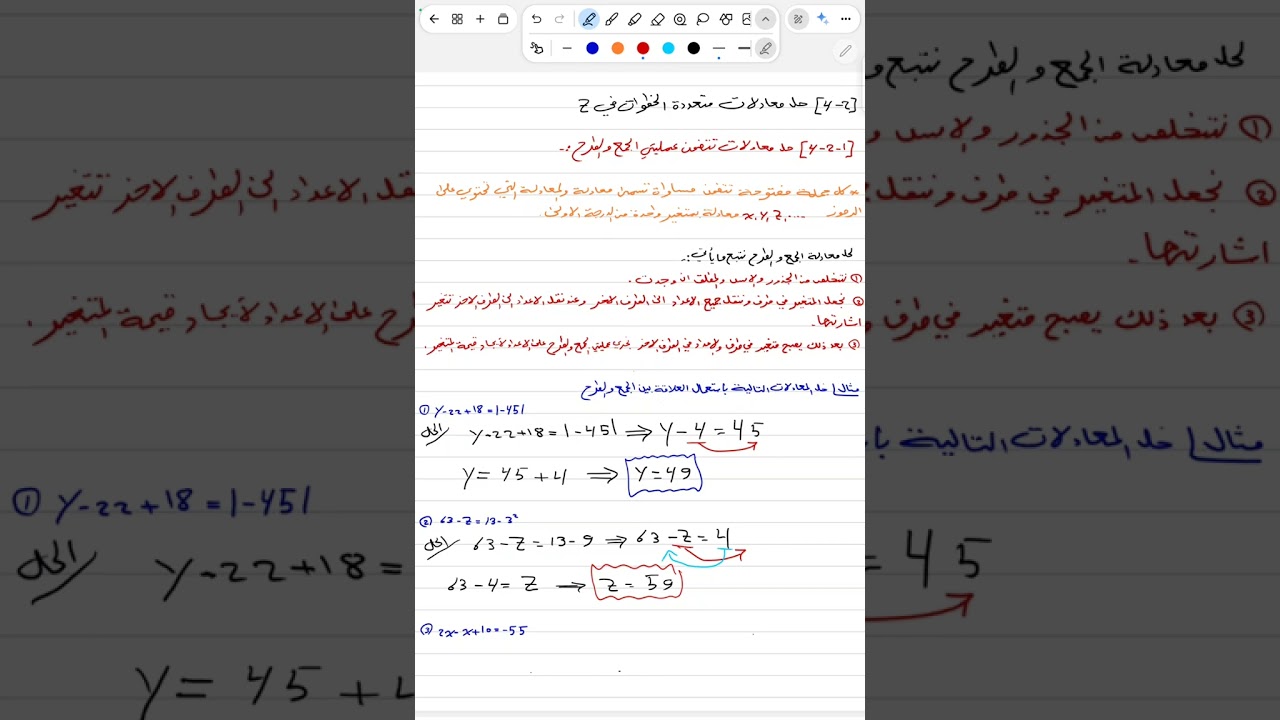 [4-2] حل معادلات متعددة الخطوات في Z
[4-2-1] حل معادلات تتضمن عمليتي الجمع والطرح :-
* كل جملة مفتوحة تتضمن مساواة تسمى معادلة والمعادلة التي تحتوي على
الرموز x, y, z, .... معادلة بمتغير واحدة من الدرجة الاولى
لحل معادلة الجمع و الطرح نتبع ما يأتي :-
① نتخلص من الجذور والاسس والمطلق ان وجدت .
② نجعل المتغير في طرف وننقل جميع الاعداد الى الطرف الاخر وعند نقل الاعداد الى الطرف الاخر تتغير
اشارتها .
③ بعد ذلك يصبح متغير في طرف والاعداد في الطرف الاخر نجري عمليتي الجمع والطرح على الاعداد لأيجاد قيمة المتغير .
مثال / حل المعادلات التالية بأستعمال العلاقة بين الجمع والطرح
① y-22+18=|-45|
الحل/ y-22+18=|-45| ⇒ y-4=45
y=45+4 ⇒ y=49
② 63-z=13-3²
الحل/ 63-z=13-9 ⇒ 63-z=4
63-4=z → z=59
③ 2x-x+10=-55